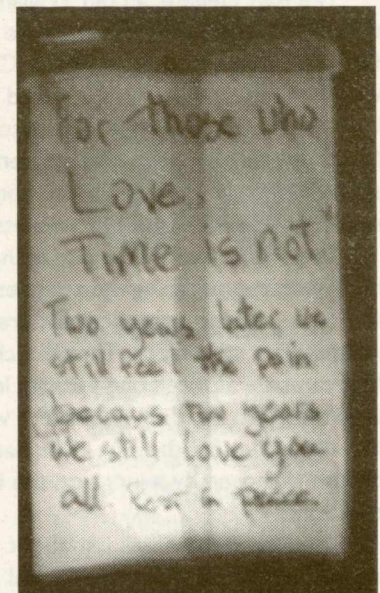 "For those who
Love,
Time is not."
Two years later we
still feel the pain
becaus two years
We still love you
all. Rest in peace.